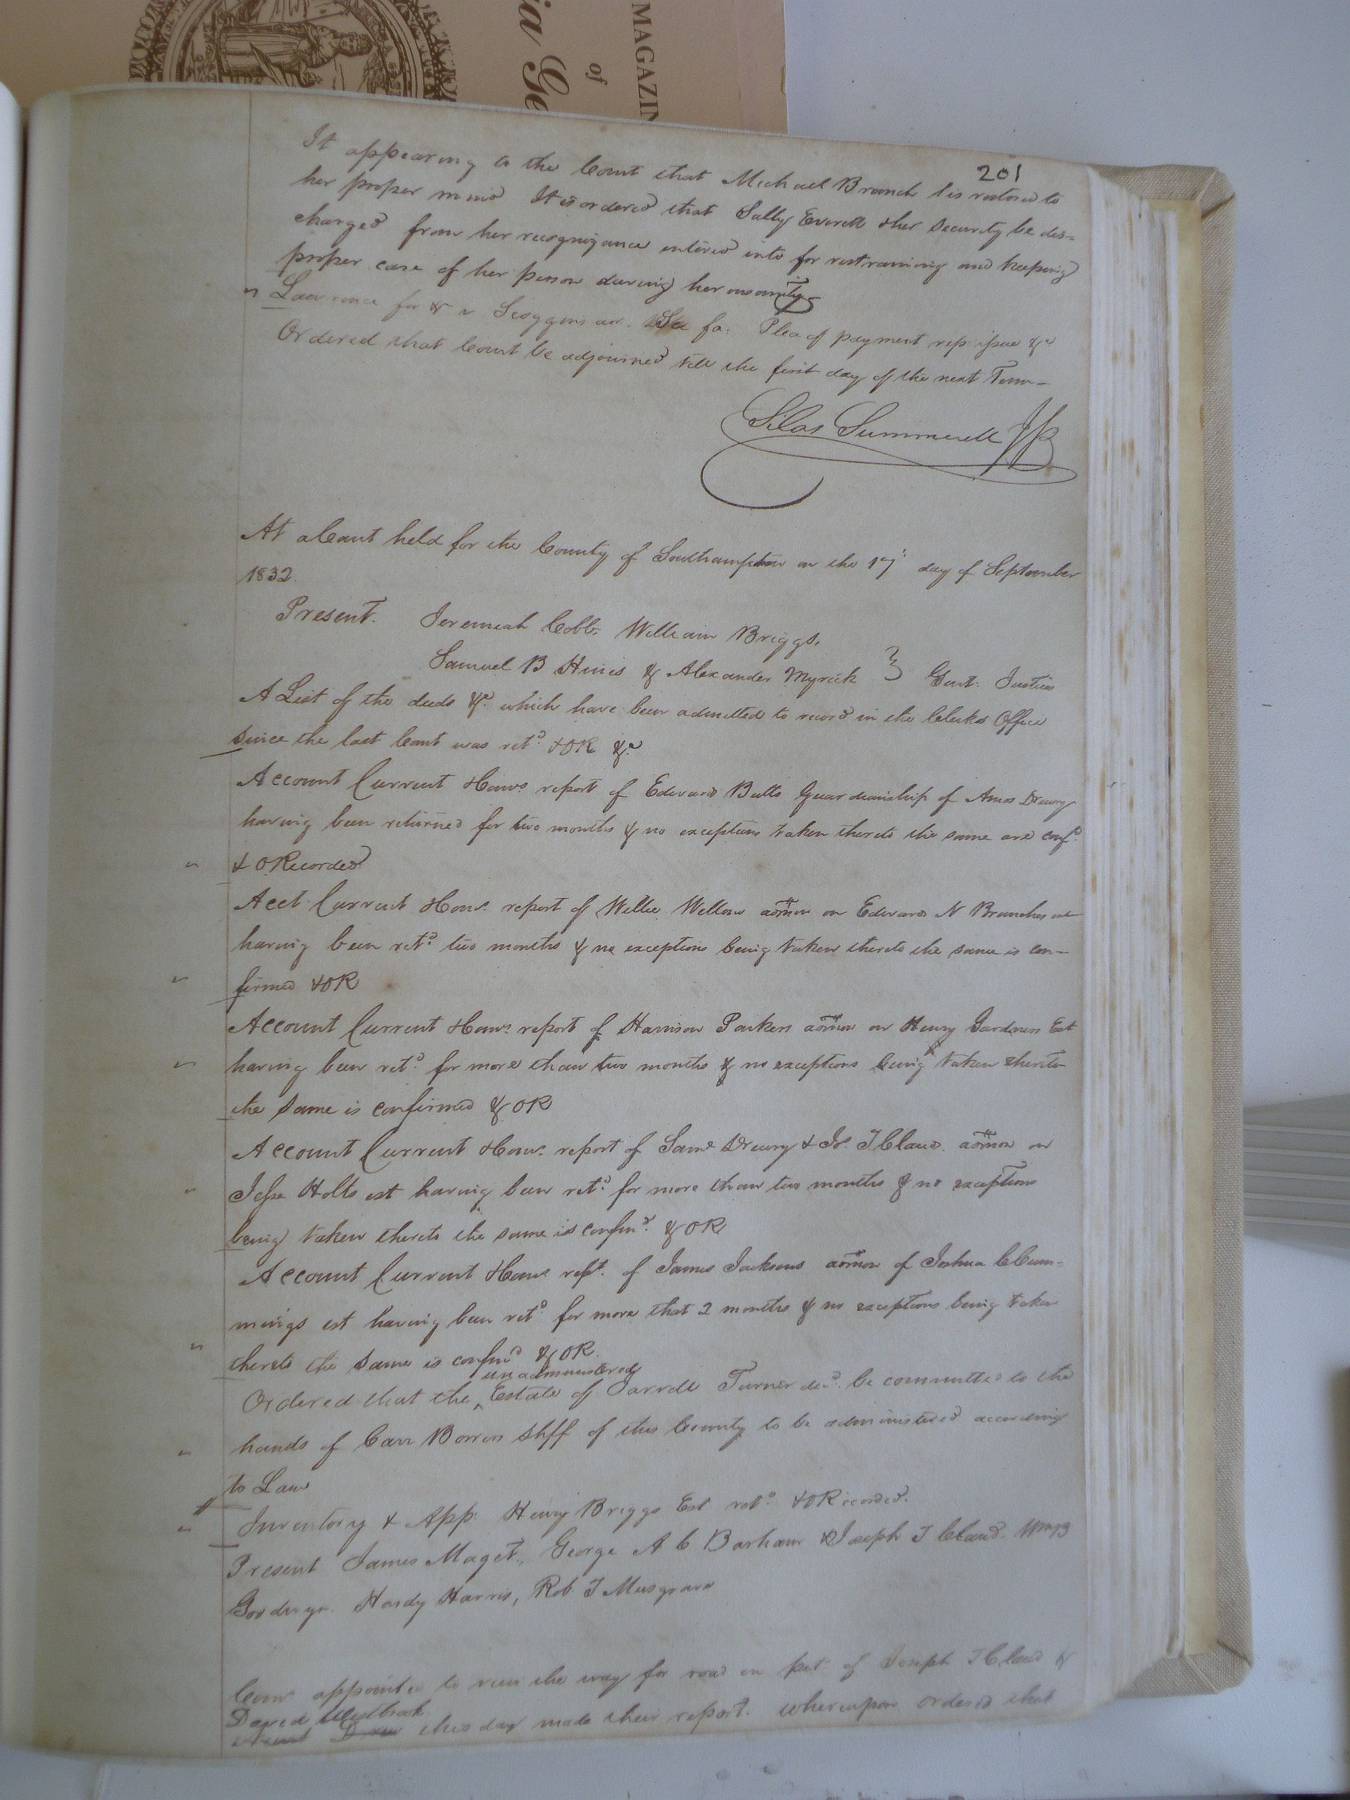 MAGAZIN
of
ia Ge
201
It appearing to the Court that Michael Branch is restored to
her proper mind It is ordered that Sally Everett & her security be dis=
charged from her recognizance entered into for restraining and keeping
proper care of her person during her insanity
Lawrence for &c v Scoggins adr. Sci fa. Plea of payment rep issue &c
Ordered that Court be adjourned till the first day of the next Term—
Silas Summerell JP
At a Court held for the County of Southampton on the 17 day of September
1832.
Present. Jeremiah Cobb, William Briggs,
Samuel B Hines & Alexander Myrick } Gent. Justices
A List of the deeds &c. which have been admitted to record in the Clerks Office
since the last Court was retd. & OR &c
Account Current & Coms report of Edward Butts Guardianship of Amos Drewry
having been returned for two months & no exceptions taken thereto the same are confd.
& O Recorded
Acct Current & Coms. report of Willie admor on Edward N Branches est
having been retd. two months & no exceptions being taken thereto the same is con—
firmed & OR
Account Current & Coms. report of Harrison Parkers admor on Henry Gardners Est
having been retd. for more than two months & no exceptions being taken thereto
the same is confirmed & OR
Account Current & Coms. report of Saml Drewry & Js. T Claud. admor on
Jesse Holts est having been retd. for more than two months & no exceptions
being taken thereto the same is confmd. & OR
Account Current & Coms rept. of James Jacksons admor of Joshua C Cum-
mings est having been retd. for more that 2 months & no exceptions being taken
thereto the same is confmd & OR.
unadministered
Ordered that the ‸ Estate of Jarrell Turner decd. be committed to the
hands of Carr Bowers Shff of this County to be administered according
to Law
Inventory & App. Henry Briggs Est retd. & O Recorded.
Present James Maget, George A C Barham & Joseph T Claud. Wm B
Goodwyn. Hardy Harris, Rob. T Musgrave
Coms appointed to view the way for road on pet. of Joseph T Claud &
David Westbrook
this day made their report. whereupon ordered that